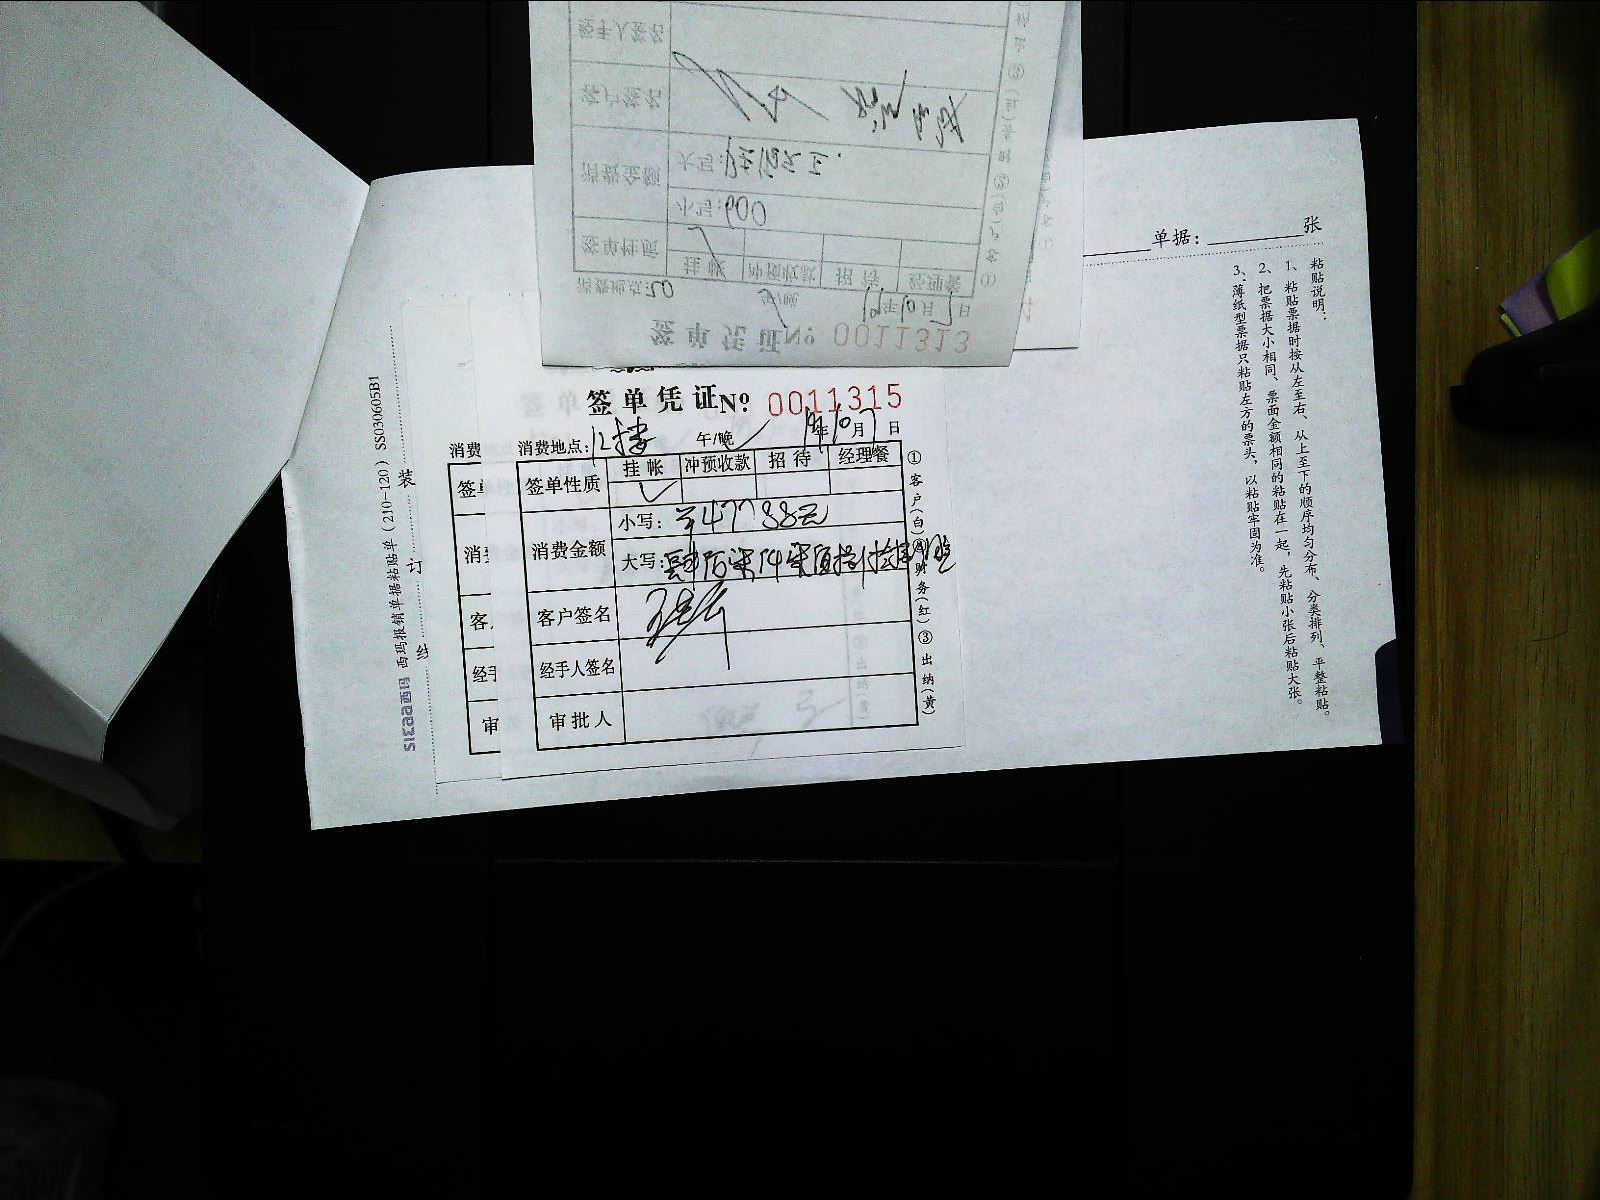 经手人签名
客户签名
消费金额
大写:
小写:600
签单性质
挂帐 冲预收款 招待 经理餐
消费地点:20 午/晚 19年10月7日
签单凭证 № 0011313
单据:______张
粘贴说明:
1、粘贴票据时按从左至右、从上至下的顺序均匀分布、分类排列、平整粘贴。
2、把票据大小相同、票面金额相同的粘贴在一起,先粘贴小张后粘贴大张。
3、薄纸型票据只粘贴左方的票头,以粘贴牢固为准。
签单凭证 № 0011315
消费地点:12楼 午/晚 19年10月7日
签单性质
挂帐 冲预收款 招待 经理餐
消费金额
小写:
大写:
客户签名
经手人签名
审批人
①客户(白)②财务(红)③出纳(黄)
消费
签单
消费
客
经手
审
装
订
线
SIMAA西玛 西玛报销单据粘贴单(210-120) SS030605B1